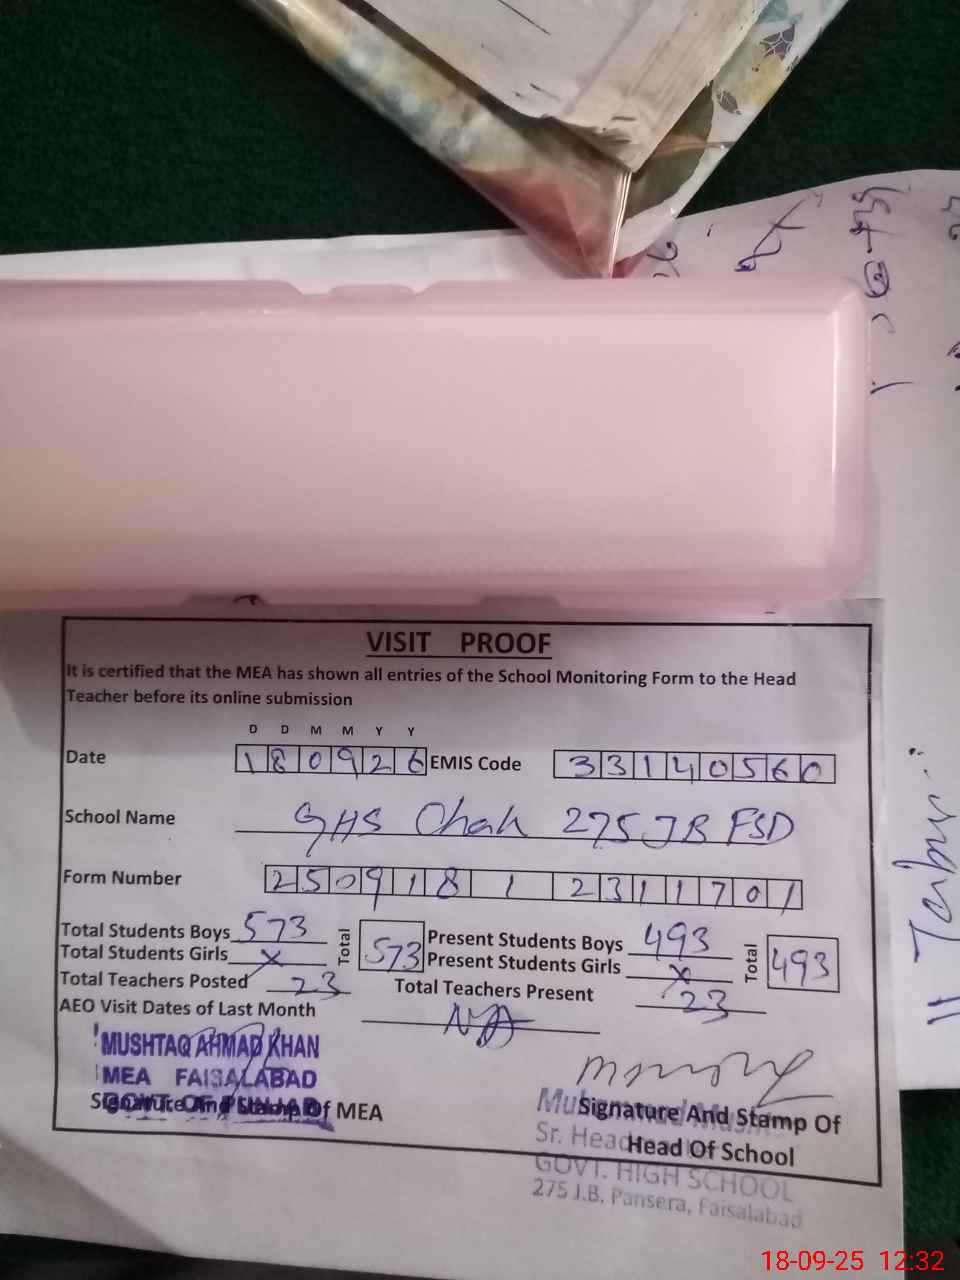 VISIT PROOF
It is certified that the MEA has shown all entries of the School Monitoring Form to the Head
Teacher before its online submission
D D M M Y Y
Date 180926 EMIS Code 33140560
School Name GHS Chak 275 JB FSD
Form Number 2509181 2311701
Total Students Boys 573 Total 573 Present Students Boys 493 Total 493
Total Students Girls x Present Students Girls x
Total Teachers Posted 23 Total Teachers Present 23
AEO Visit Dates of Last Month NA
MUSHTAQ AHMAD KHAN
MEA FAISALABAD
GOVT. OF PUNJAB
Signature And Stamp Of MEA
Signature And Stamp Of
Head Of School
Muhammad
Sr. Head
GOVT. HIGH SCHOOL
275 J.B. Pansera, Faisalabad
18-09-25 12:32